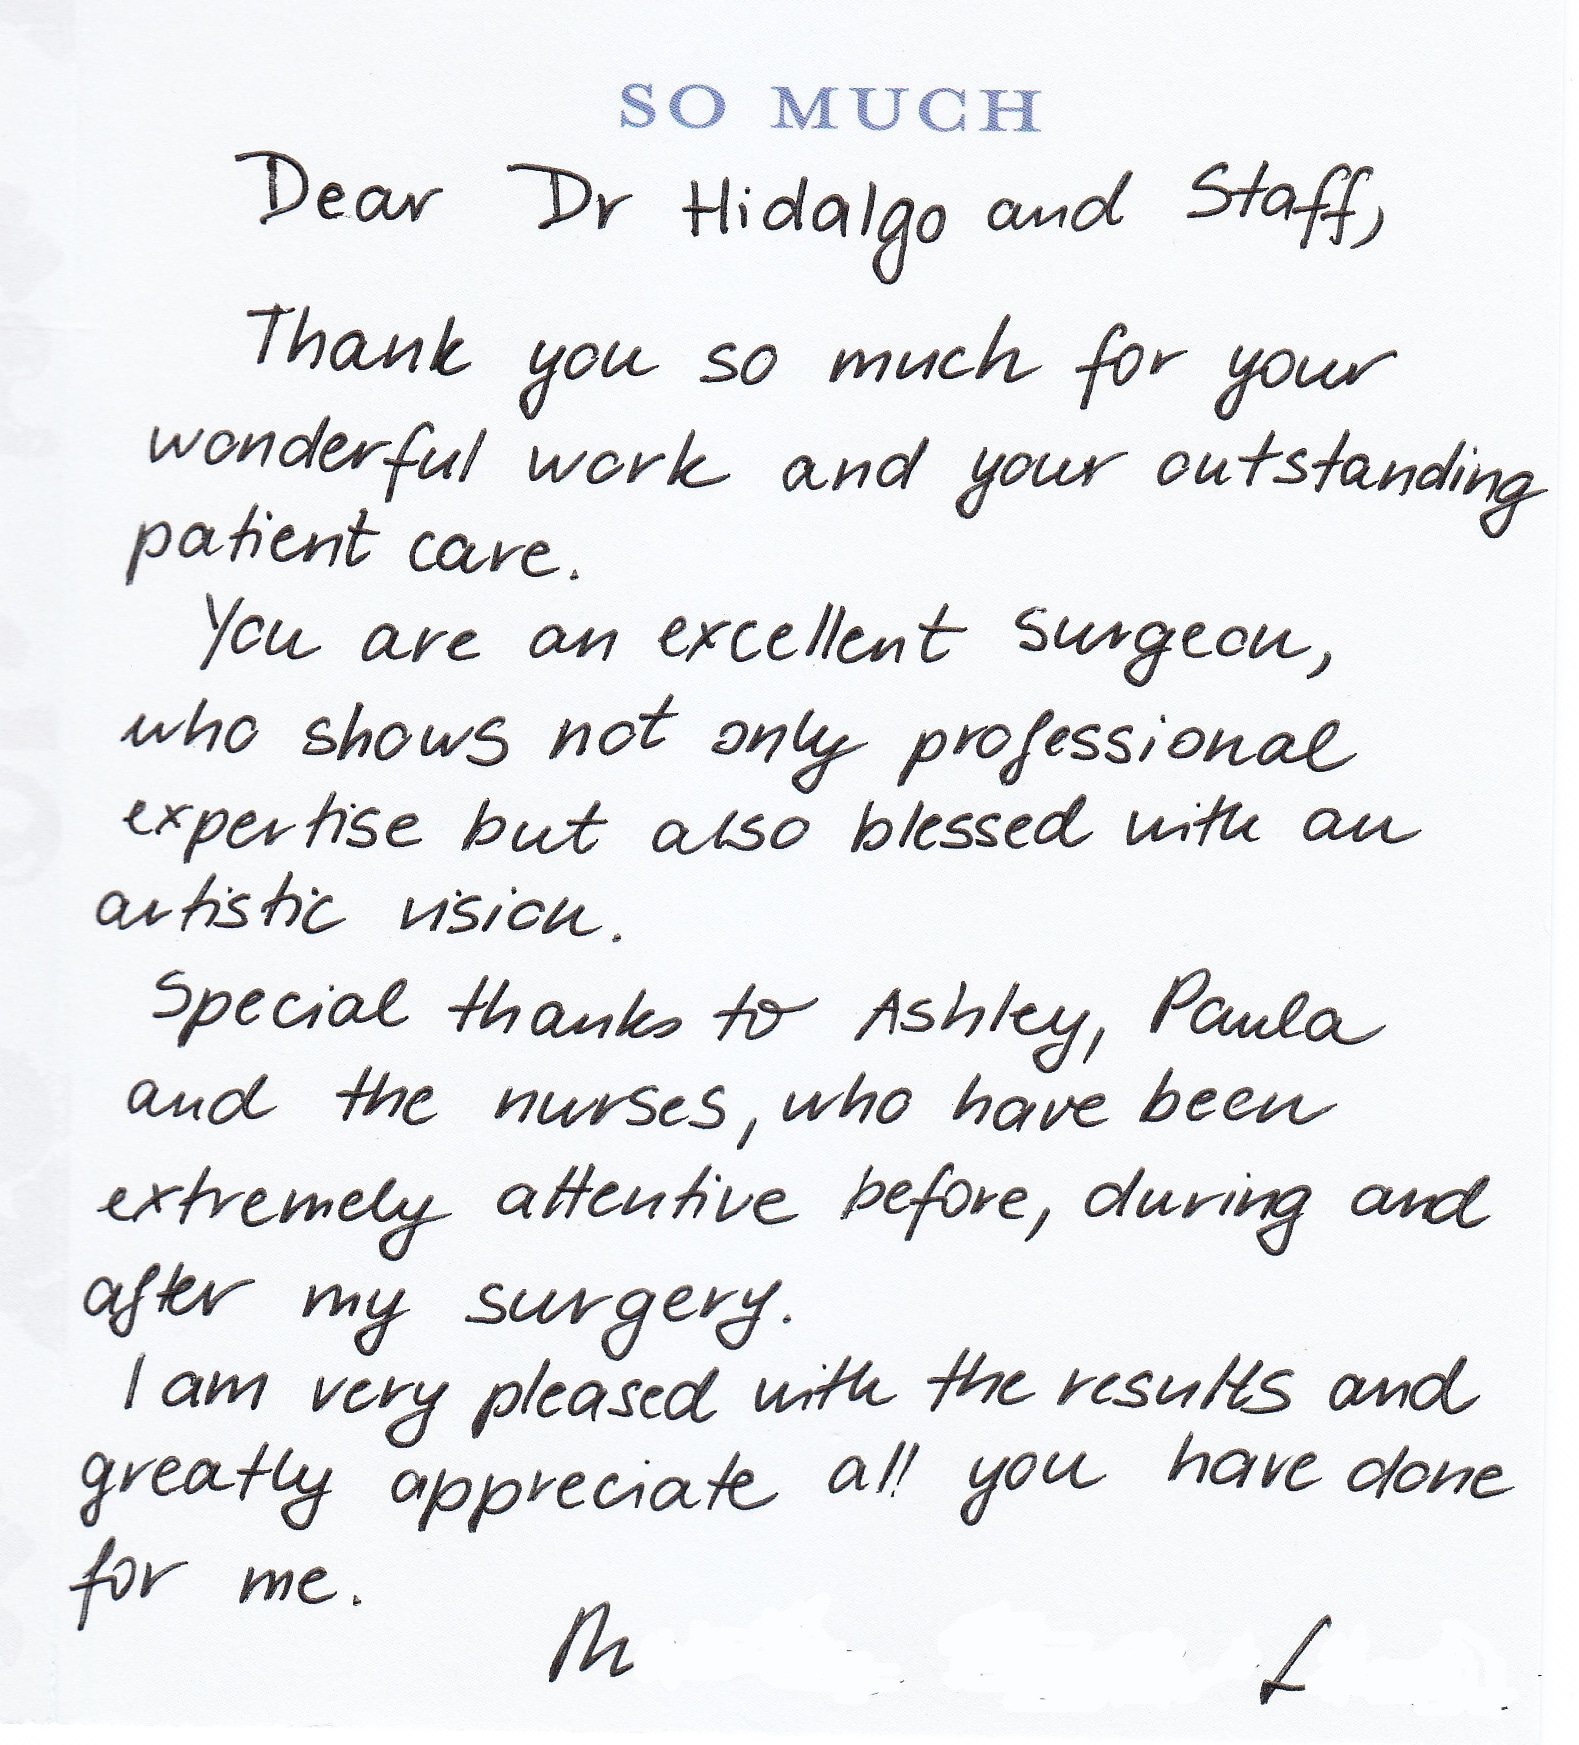 SO MUCH
Dear Dr Hidalgo and Staff,
Thank you so much for your
wonderful work and your outstanding
patient care.
You are an excellent surgeon,
who shows not only professional
expertise but also blessed with an
artistic vision.
Special thanks to Ashley, Paula
and the nurses, who have been
extremely attentive before, during and
after my surgery.
I am very pleased with the results and
greatly appreciate all you have done
for me.
M L